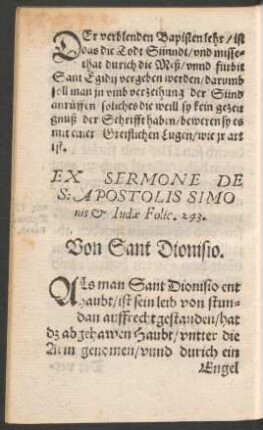 DEr verblenden Bapisten lehr/ist
das die Todt Sünndt/vnd misse-
that durich die Meß/vnnd fürbit
Sant Egidij vergeben werden/darumb
soll man jn vmb verzeihung der Sünd
anrüffen soliches die weill sy kein gezeu
gnuß der Schrifft haben/beweren sy es
mit einer Greiflichen Lugen/wie jr art
ist.
EX SERMONE DE
S: APOSTOLIS SIMO
nis & Iudæ Folic. 293.
Von Sant Dionisio.
ALs man Sant Dionisio ent
haubt/ist sein leib von stun-
dan auffrecht gestanden/hat
dz abgehawen Haubt/vntter die
Arm genomen/vnnd durich ein
Engel